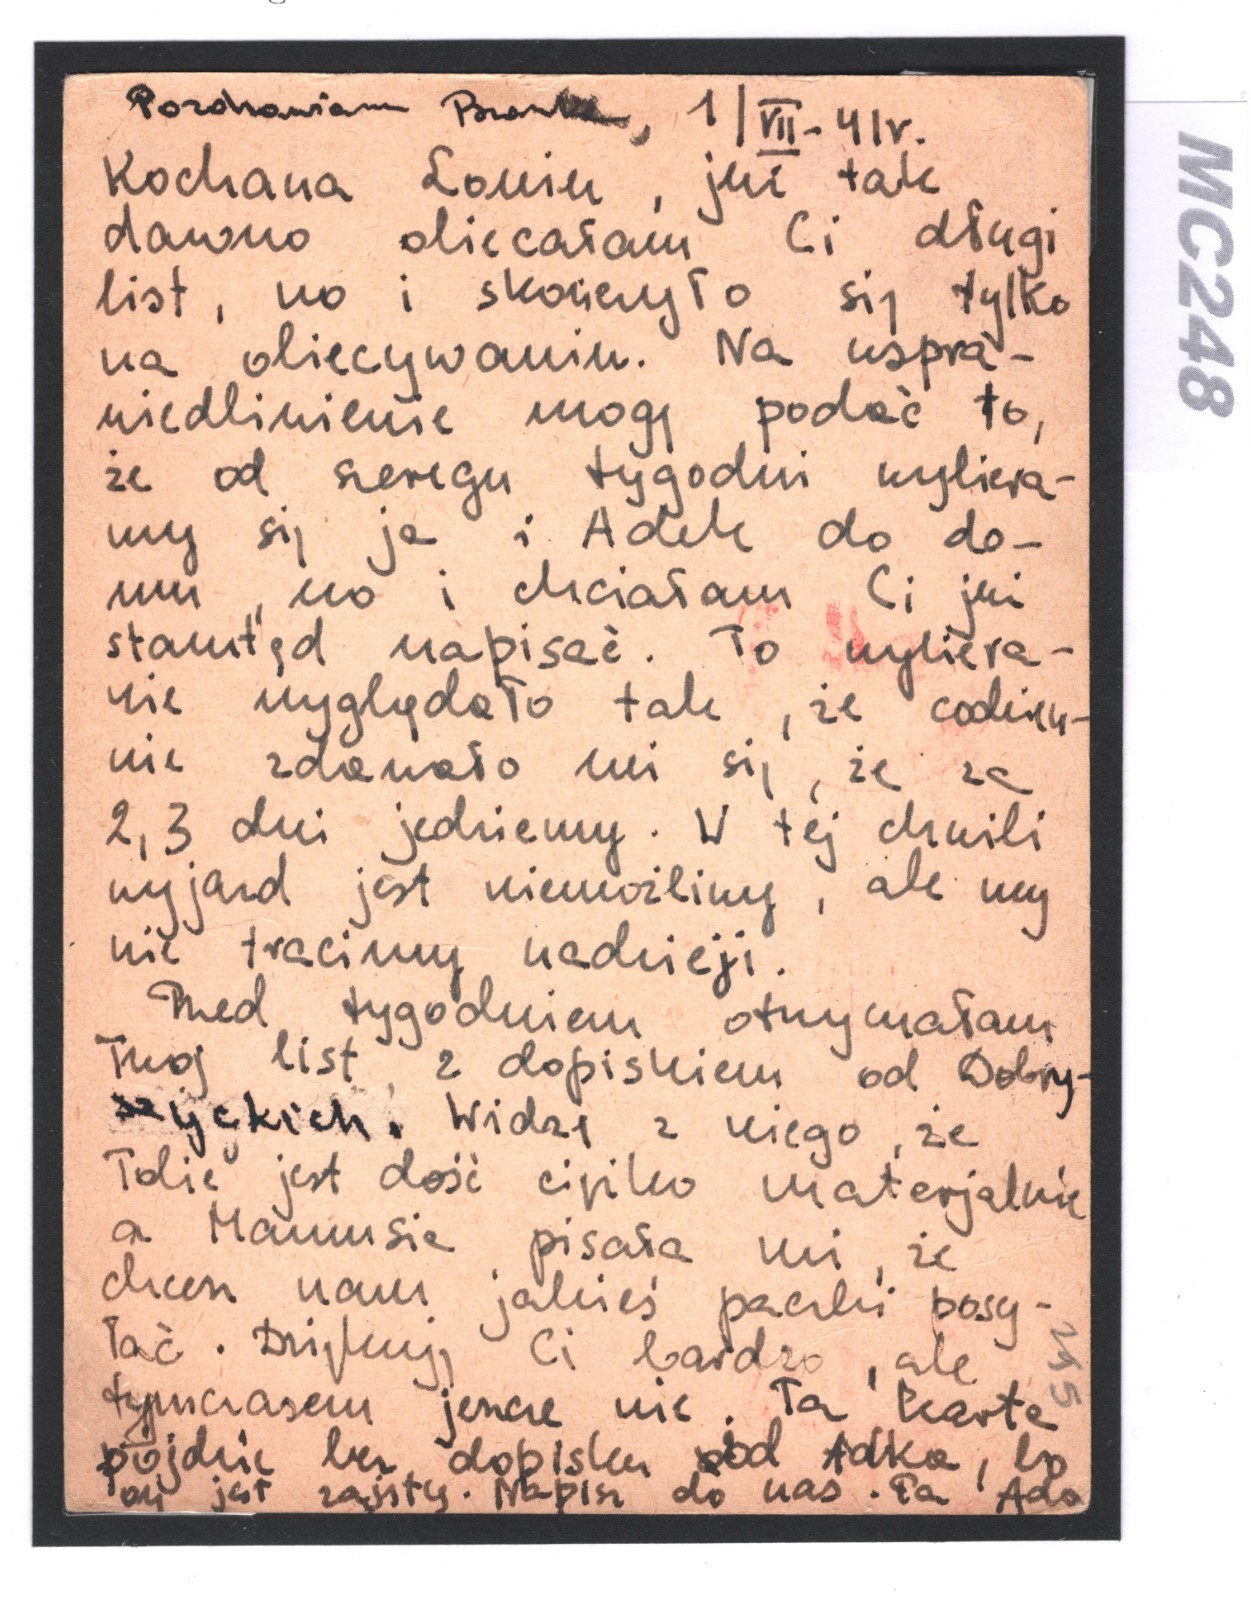 Pozdrawiam Bronka, 1/VII-41r.
Kochana Loniu, już tak
dawno obiecałam Ci długi
list, no i skończyło się tylko
na obiecywaniu. Na uspra-
wiedliwienie mogę podać to,
że od szeregu tygodni wybiera-
my się ja i Adek do do-
mu, no i chciałam Ci już
stamtąd napisać. To wybiera-
nie wyglądało tak, że codzien-
nie zdawało mi się, że za
2,3 dni jedziemy. W tej chwili
wyjazd jest niemożliwy, ale my
nie tracimy nadzieji.
Przed tygodniem otrzymałam
Twój list, z dopiskiem od Dobry-
szyckich. Widzę z niego, że
Tobie jest dość ciężko materjalnie
a Mamusia pisała mi, że
chcesz nam jakieś paczki posy-
łać. Dziękuję Ci bardzo, ale
tymczasem jeszcze nie. Ta karta
pójdzie bez dopisku od Adka, bo
on jest zajęty. Napisz do nas. Pa Ada
MC248
255